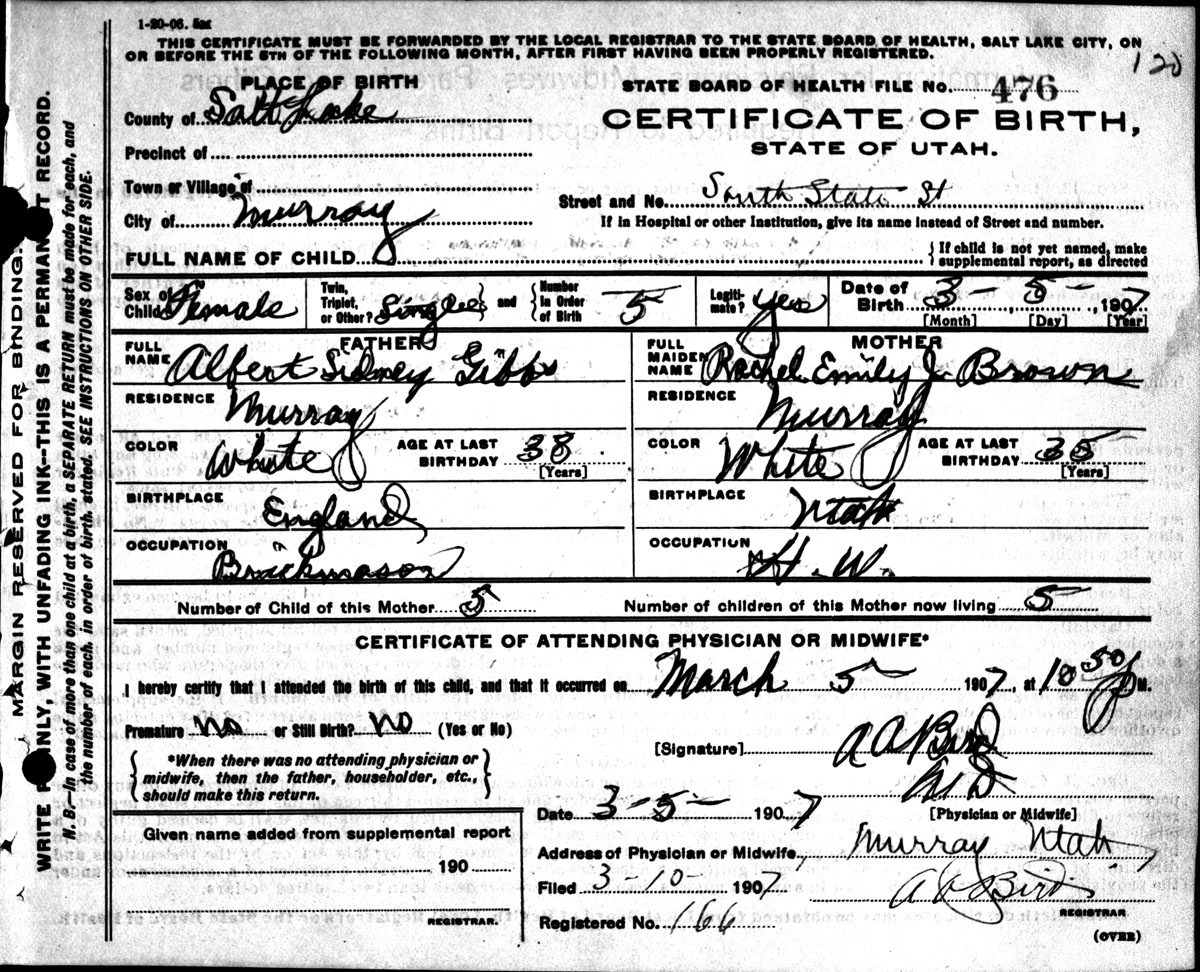 1-20-06. 5M
THIS CERTIFICATE MUST BE FORWARDED BY THE LOCAL REGISTRAR TO THE STATE BOARD OF HEALTH, SALT LAKE CITY, ON
OR BEFORE THE 5TH OF THE FOLLOWING MONTH, AFTER FIRST HAVING BEEN PROPERLY REGISTERED.
120
PLACE OF BIRTH
STATE BOARD OF HEALTH FILE No. 476
County of Salt Lake
CERTIFICATE OF BIRTH,
Precinct of
STATE OF UTAH.
Town or Village of
Street and No. South State St
City of Murray
If in Hospital or other Institution, give its name instead of Street and number.
FULL NAME OF CHILD
{If child is not yet named, make supplemental report, as directed
Sex of Child Female Twin, Triplet, or Other? Single } and { Number in Order of Birth 5 Legitimate? yes Date of Birth 3 - 5 - , 1907
[Month] [Day] [Year]
FATHER MOTHER
FULL NAME Albert Sidney Gibbs FULL MAIDEN NAME Rachel Emily J. Brown
RESIDENCE Murray RESIDENCE Murray
COLOR White AGE AT LAST BIRTHDAY 38 [Years] COLOR White AGE AT LAST BIRTHDAY 35 [Years]
BIRTHPLACE England BIRTHPLACE Utah
OCCUPATION Brickmason OCCUPATION H. W.
Number of Child of this Mother 5 Number of children of this Mother now living 5
CERTIFICATE OF ATTENDING PHYSICIAN OR MIDWIFE*
I hereby certify that I attended the birth of this child, and that it occurred on March 5 - 1907, at 10 50 P M.
Premature no or Still Birth? no (Yes or No)
[Signature] A A Bird
M D
[Physician or Midwife]
{ *When there was no attending physician or
midwife, then the father, householder, etc.,
should make this return. }
Date 3 - 5 - 1907
Given name added from supplemental report
190
REGISTRAR.
Address of Physician or Midwife, Murray Utah
Filed 3 - 10 - 1907 A A Bird
REGISTRAR
Registered No. 166
(OVER)
MARGIN RESERVED FOR BINDING.
WRITE PLAINLY, WITH UNFADING INK—THIS IS A PERMANENT RECORD.
N. B.—In case of more than one child at a birth, a SEPARATE RETURN must be made for each, and
the number of each, in order of birth, stated. SEE INSTRUCTIONS ON OTHER SIDE.